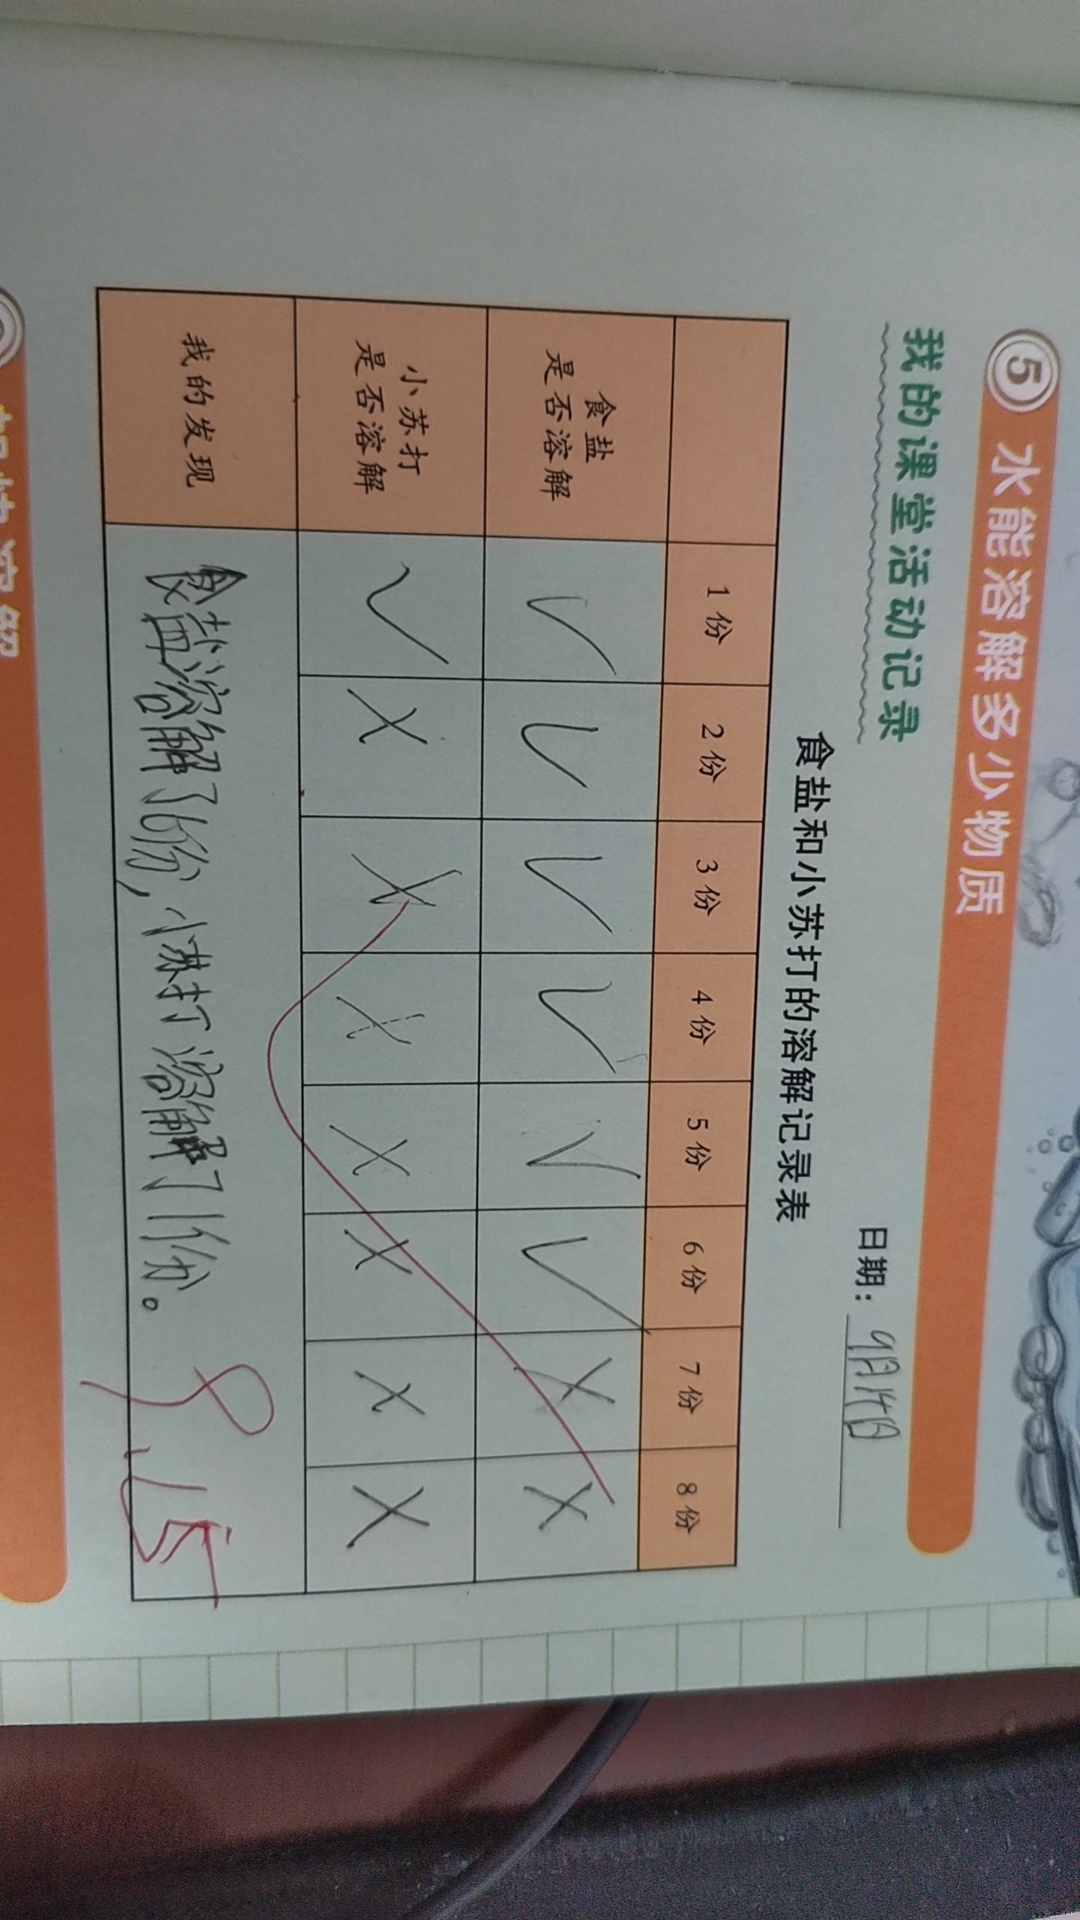 5 水能溶解多少物质
我的课堂活动记录
日期：9月14日
食盐和小苏打的溶解记录表
1份 2份 3份 4份 5份 6份 7份 8份
食盐
是否溶解 ✓ ✓ ✓ ✓ ✓ ✓ × ×
小苏打
是否溶解 ✓ × × × × × × ×
我的发现 食盐溶解了6份，小苏打溶解了1份。
9.15
溶解